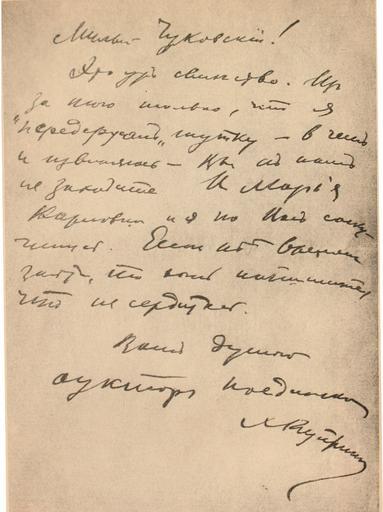 Милый Чуковскій!
Это ужъ свинство. Из
за того только, что я
"передерзилъ" шутку – в чемъ
и извиняюсь – Вы къ намъ
не заходите И Марья
Карловна и я по Вас соску
чились. Если нѣт времени
зайти, то хоть напишите,
что не сердитесь.
Вашъ душою
А Куприн